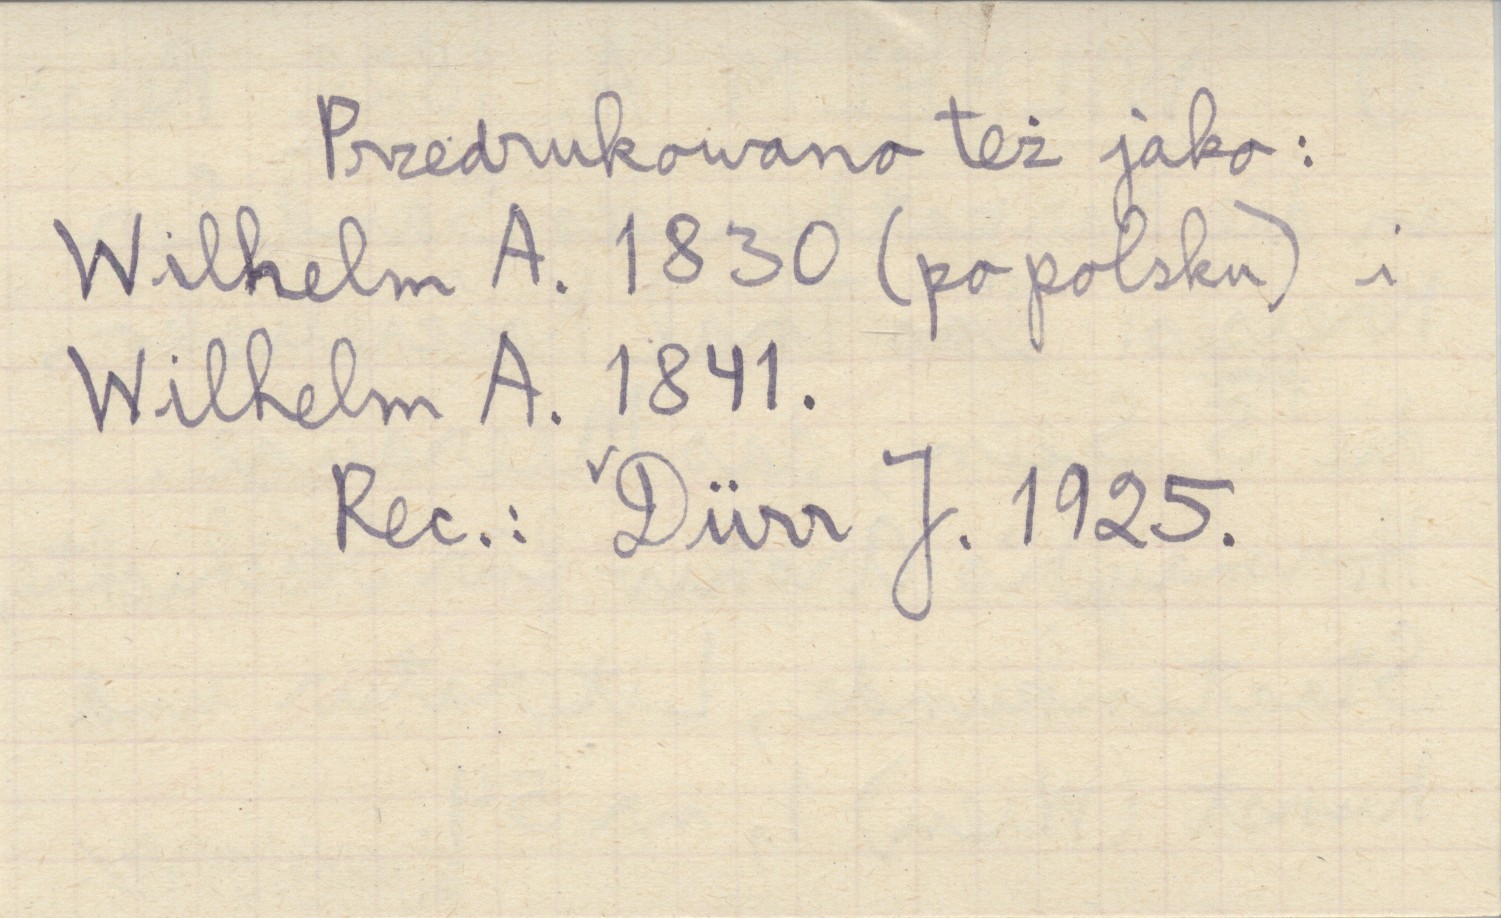 Przedrukowano też jako:
Wilhelm A. 1830 (po polsku) i
Wilhelm A. 1841.
Rec.: ✓Dürr J. 1925.